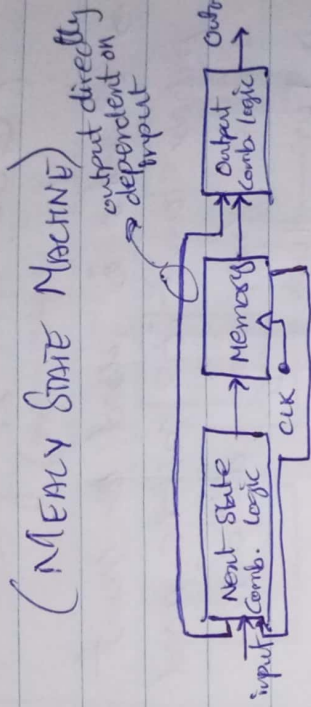 (MEALY STATE MACHINE)
output directly
dependent on
input
input
Next State
Comb. Logic
Memory
CLK
Output
Comb. logic